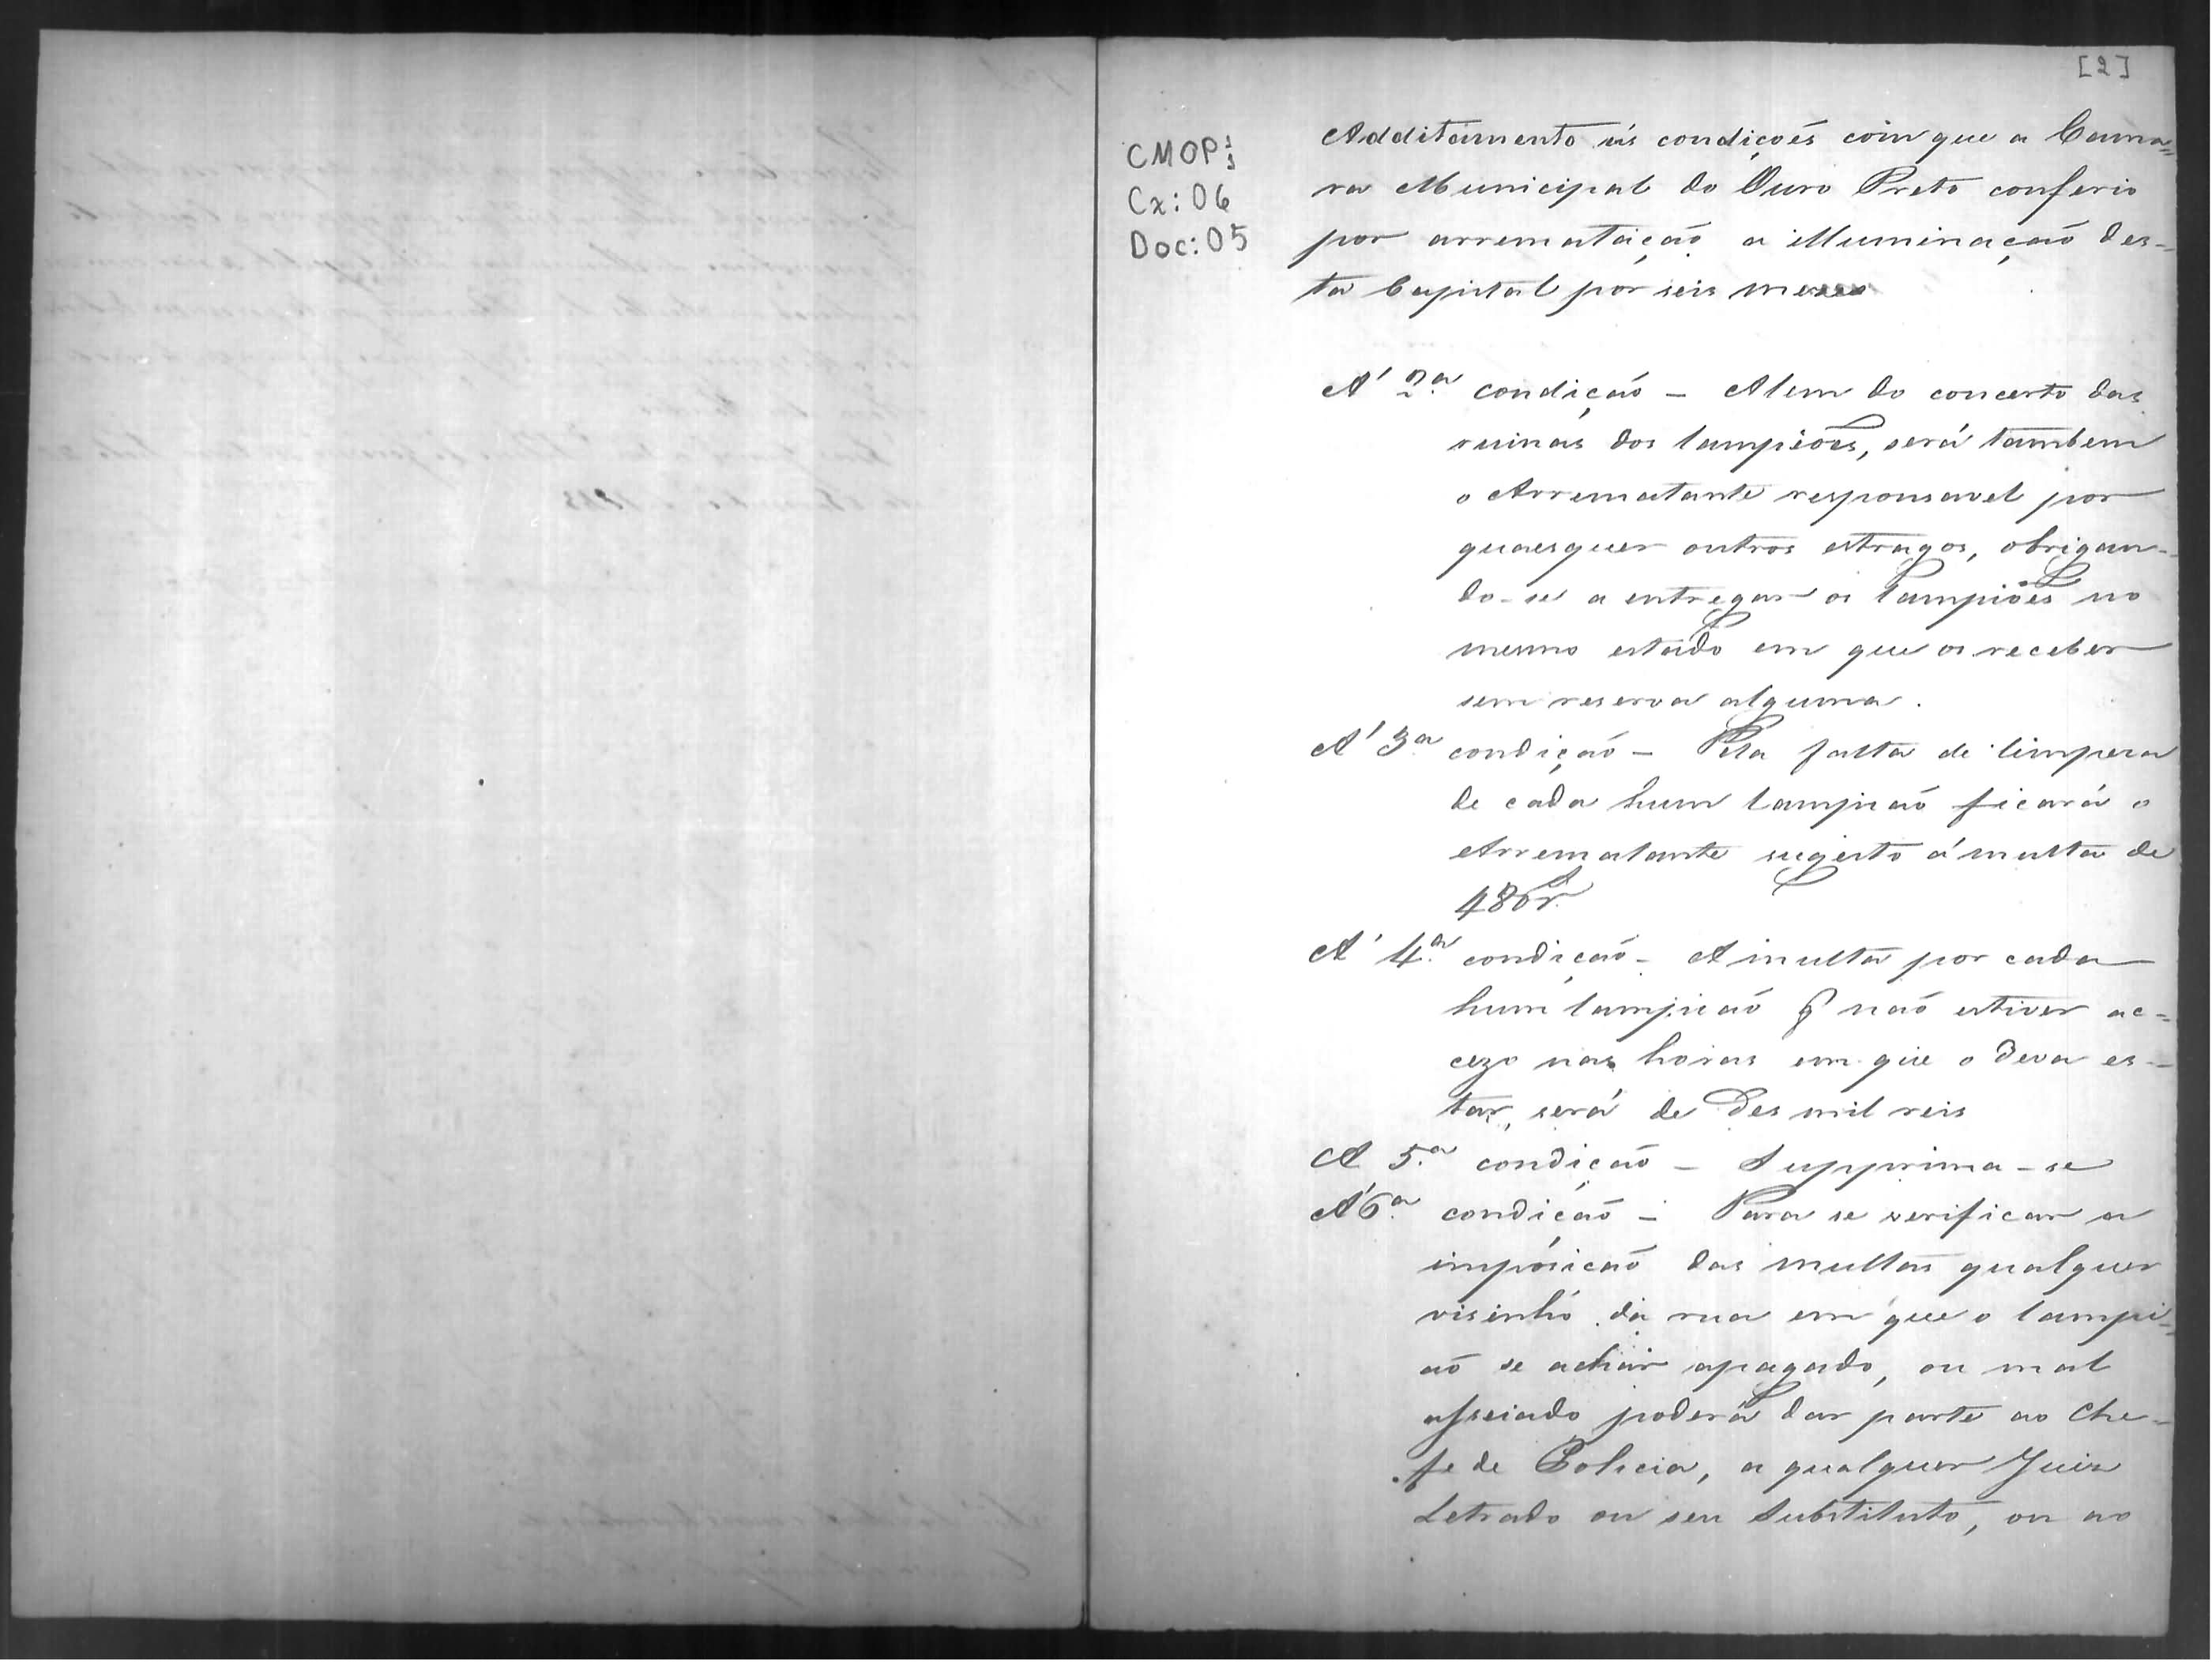 [2]
CMOP:
Cx: 06
Doc: 05
Additamento ás condiçoẽs com que a Cama=
ra Municipal do Ouro Preto conferio
por arremataçaõ a illuminaçaõ des-
ta Capital por seis meses
A' 2.ª condiçaõ - Alem do concerto das
ruinas dos lampioẽs, será tambem
o Arrematante responsavel por
quaesquer outros estragos, obrigan-
do-se a entregar os lampioẽs no
mesmo estado em que os receber
sem reserva alguma.
A' 3.ª condiçaõ - Pela falta de limpeza
de cada hum lampiaõ ficará o
Arrematante sugeito á multa de
480 r.s
A' 4.ª condiçaõ - A multa por cada
hum lampiaõ q̃ naõ estiver ac-
cezo nas horas em que o deva es-
tar, será de des mil reis
A 5.ª condiçaõ - Supprima-se
A' 6.ª condiçaõ - Para se verificar a
imposicaõ das multas qualquer
visinho da rua em que o lampi=
aõ se achar apagado, ou mal
asseiado poderá dar parte ao Che-
fe de Policia, a qualquer Juis
Letrado ou seu Substituto, ou ao